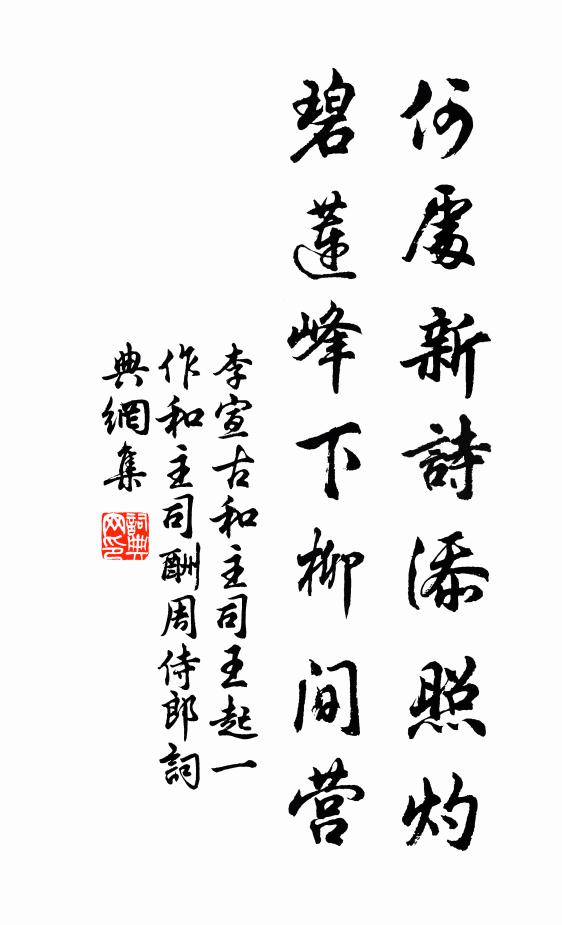 何處新詩添照灼
碧蓮峰下柳間营
李宣古和主司王起一
作和主司酬周侍郎詞
典網集
詞典
网印